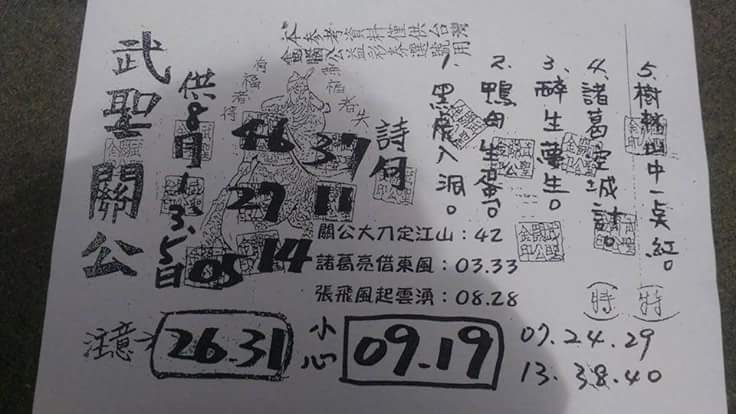 本參考資料僅供台灣
公益彩券選號用
武聖關公
供8月1.3.5日
46 37
27 11
05 14
詩句
1.黑虎入洞。
2.鴨母生蛋。
3.醉生夢生。
4.諸葛空城計。
5.樹林中一点紅。
關公大刀定江山：42
諸葛亮借東風：03.33
張飛風起雲湧：08.28
(特 特)
注意 26.31
小心 09.19
07.24.29
13.38.40